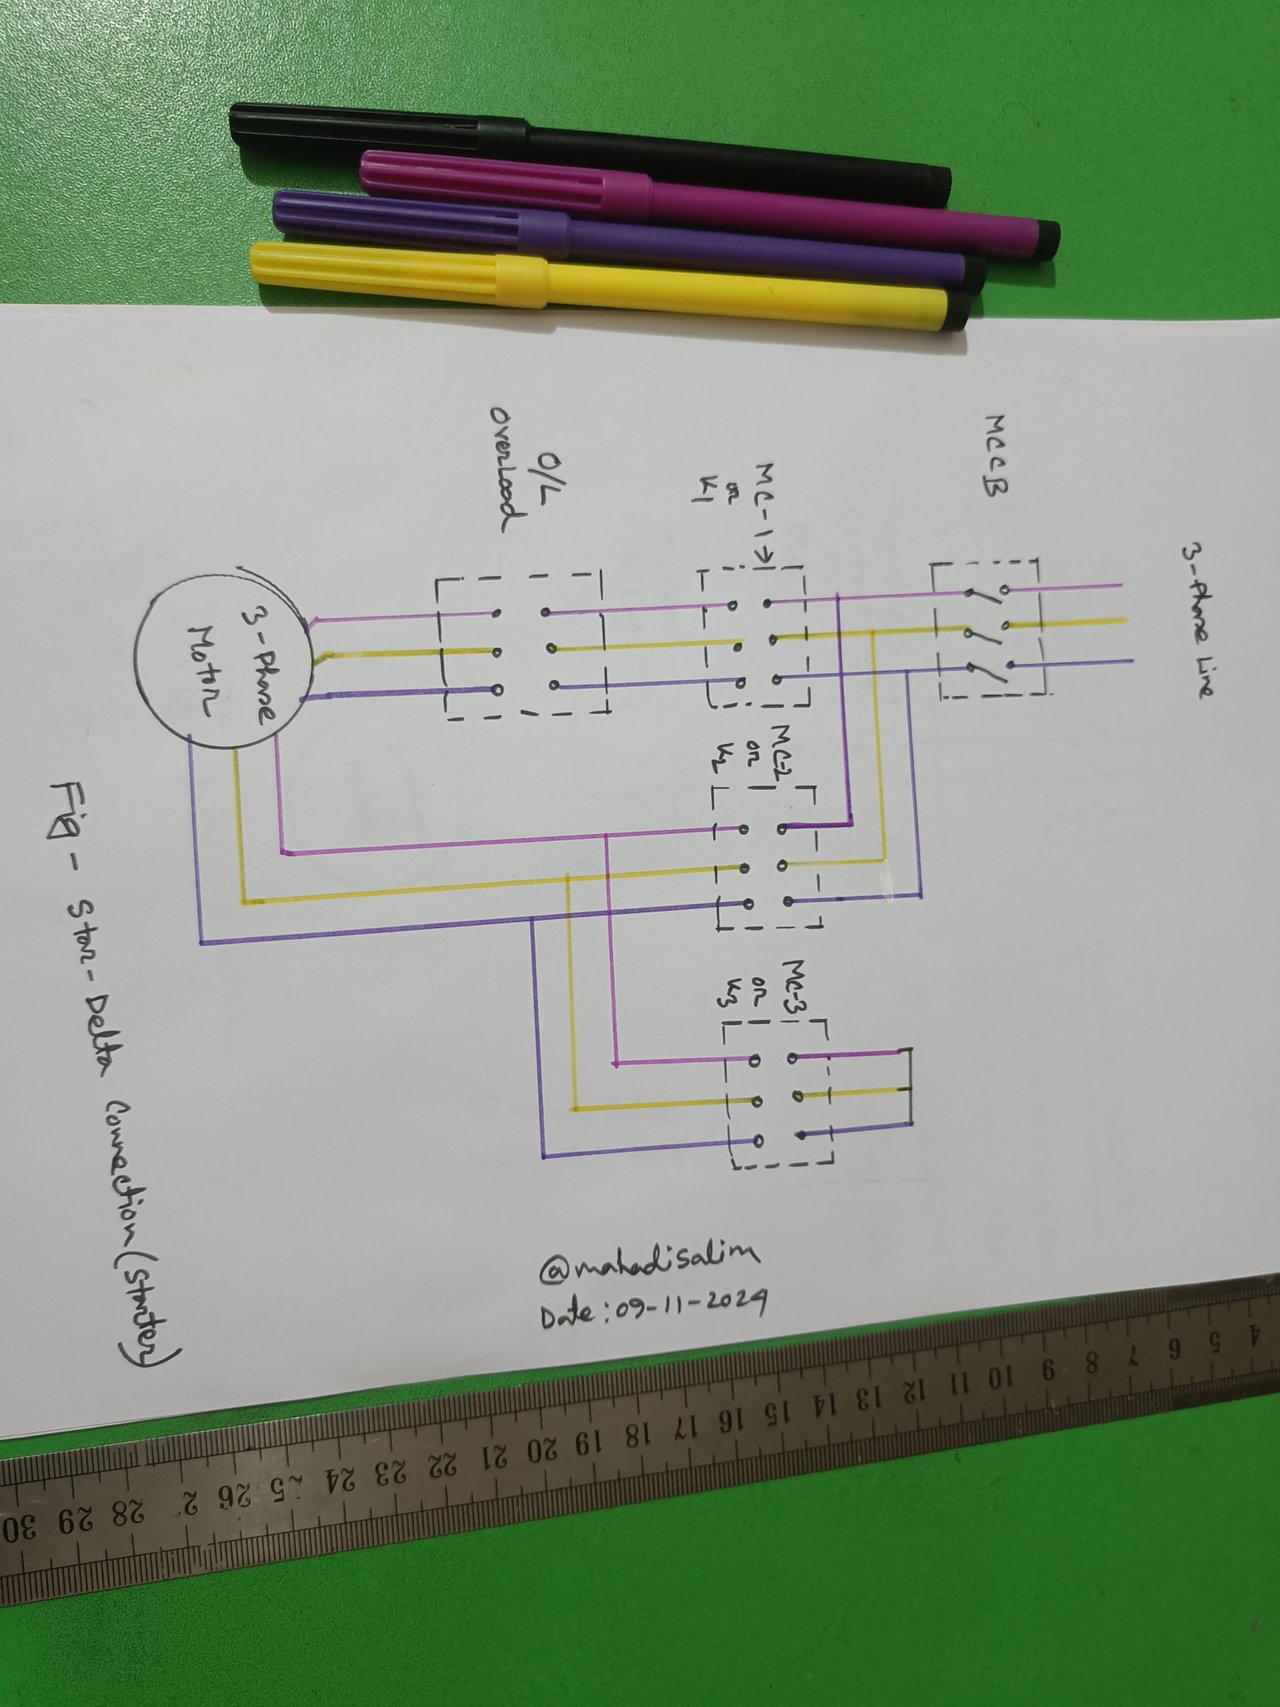 3-Phase Line
MCCB
MC-1→
or
K1
O/L
Overload
MC-2
or
K2
MC-3
or
K3
3-Phase
Motor
Fig - Star-Delta Connection (Starter)
@mahadisalim
Date: 09-11-2024
4 5 6 7 8 9 10 11 12 13 14 15 16 17 18 19 20 21 22 23 24 25 26 2 28 29 30